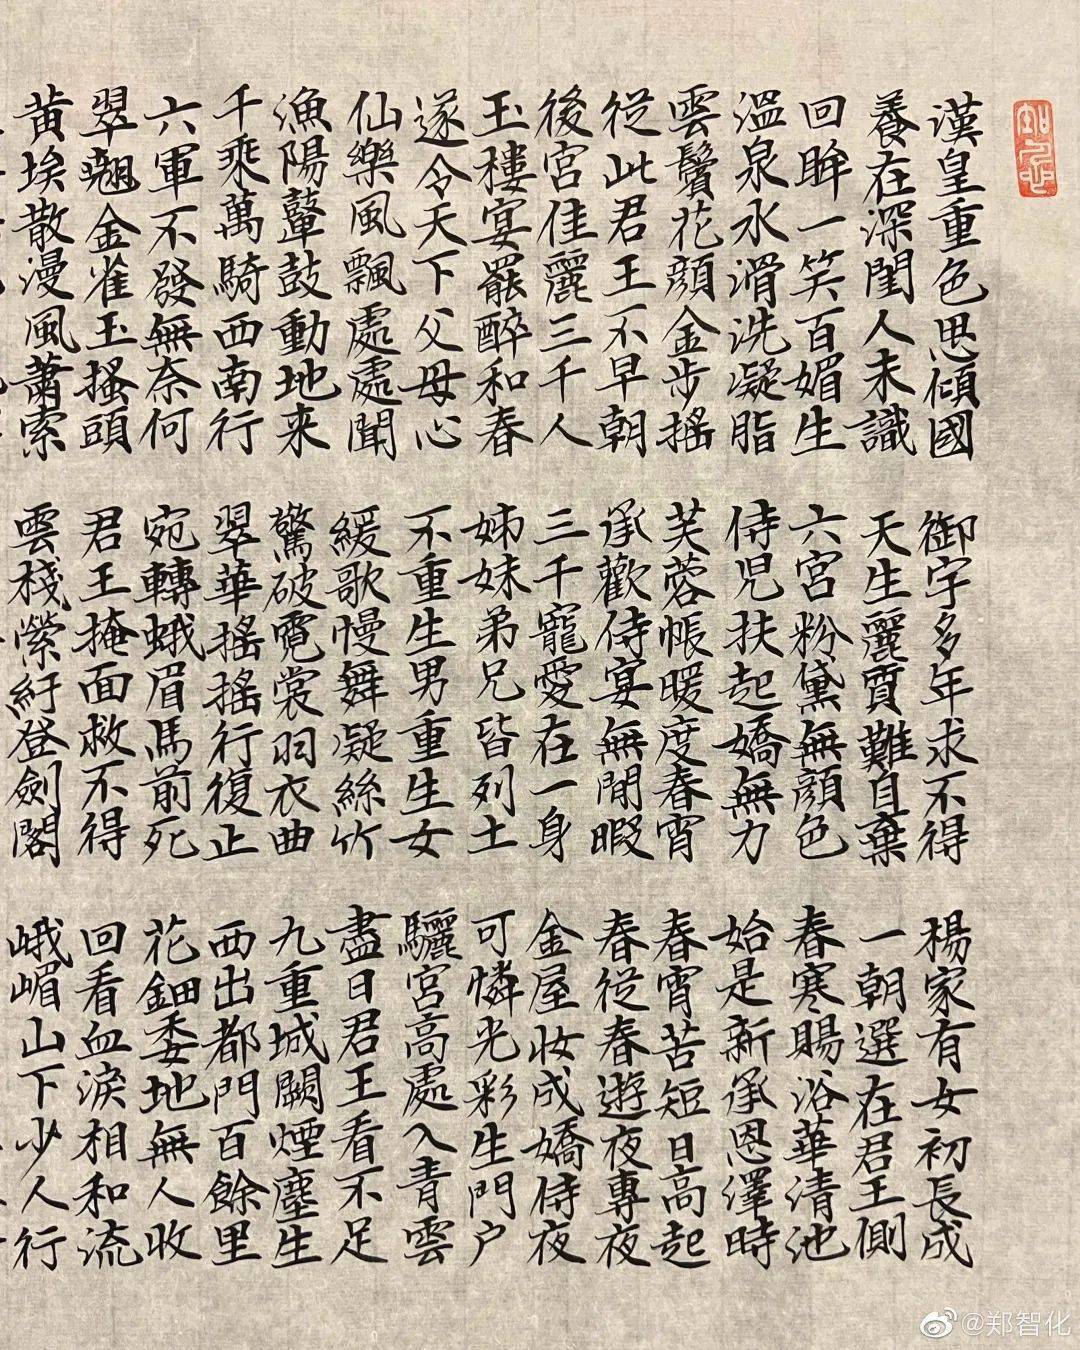 漢皇重色思傾國 御宇多年求不得 楊家有女初長成
養在深閨人未識 天生麗質難自棄 一朝選在君王側
回眸一笑百媚生 六宮粉黛無顏色 春寒賜浴華清池
溫泉水滑洗凝脂 侍児扶起嬌無力 始是新承恩澤時
雲鬢花顏金步搖 芙蓉帳暖度春宵 春宵苦短日高起
從此君王不早朝 承歡侍宴無閒暇 春從春遊夜專夜
後宮佳麗三千人 三千寵愛在一身 金屋妝成嬌侍夜
玉樓宴罷醉和春 姊妹弟兄皆列土 可憐光彩生門户
遂令天下父母心 不重生男重生女 驪宮高處入青雲
仙樂風飄處處聞 緩歌慢舞凝絲竹 盡日君王看不足
漁陽鼙鼓動地来 驚破霓裳羽衣曲 九重城闕煙塵生
千乘萬騎西南行 翠華搖搖行復止 西出都門百餘里
六軍不發無奈何 宛轉蛾眉馬前死 花鈿委地無人收
翠翹金雀玉搔頭 君王掩面救不得 回看血淚相和流
黄埃散漫風蕭索 雲棧縈紆登劍閣 峨嵋山下少人行
@郑智化